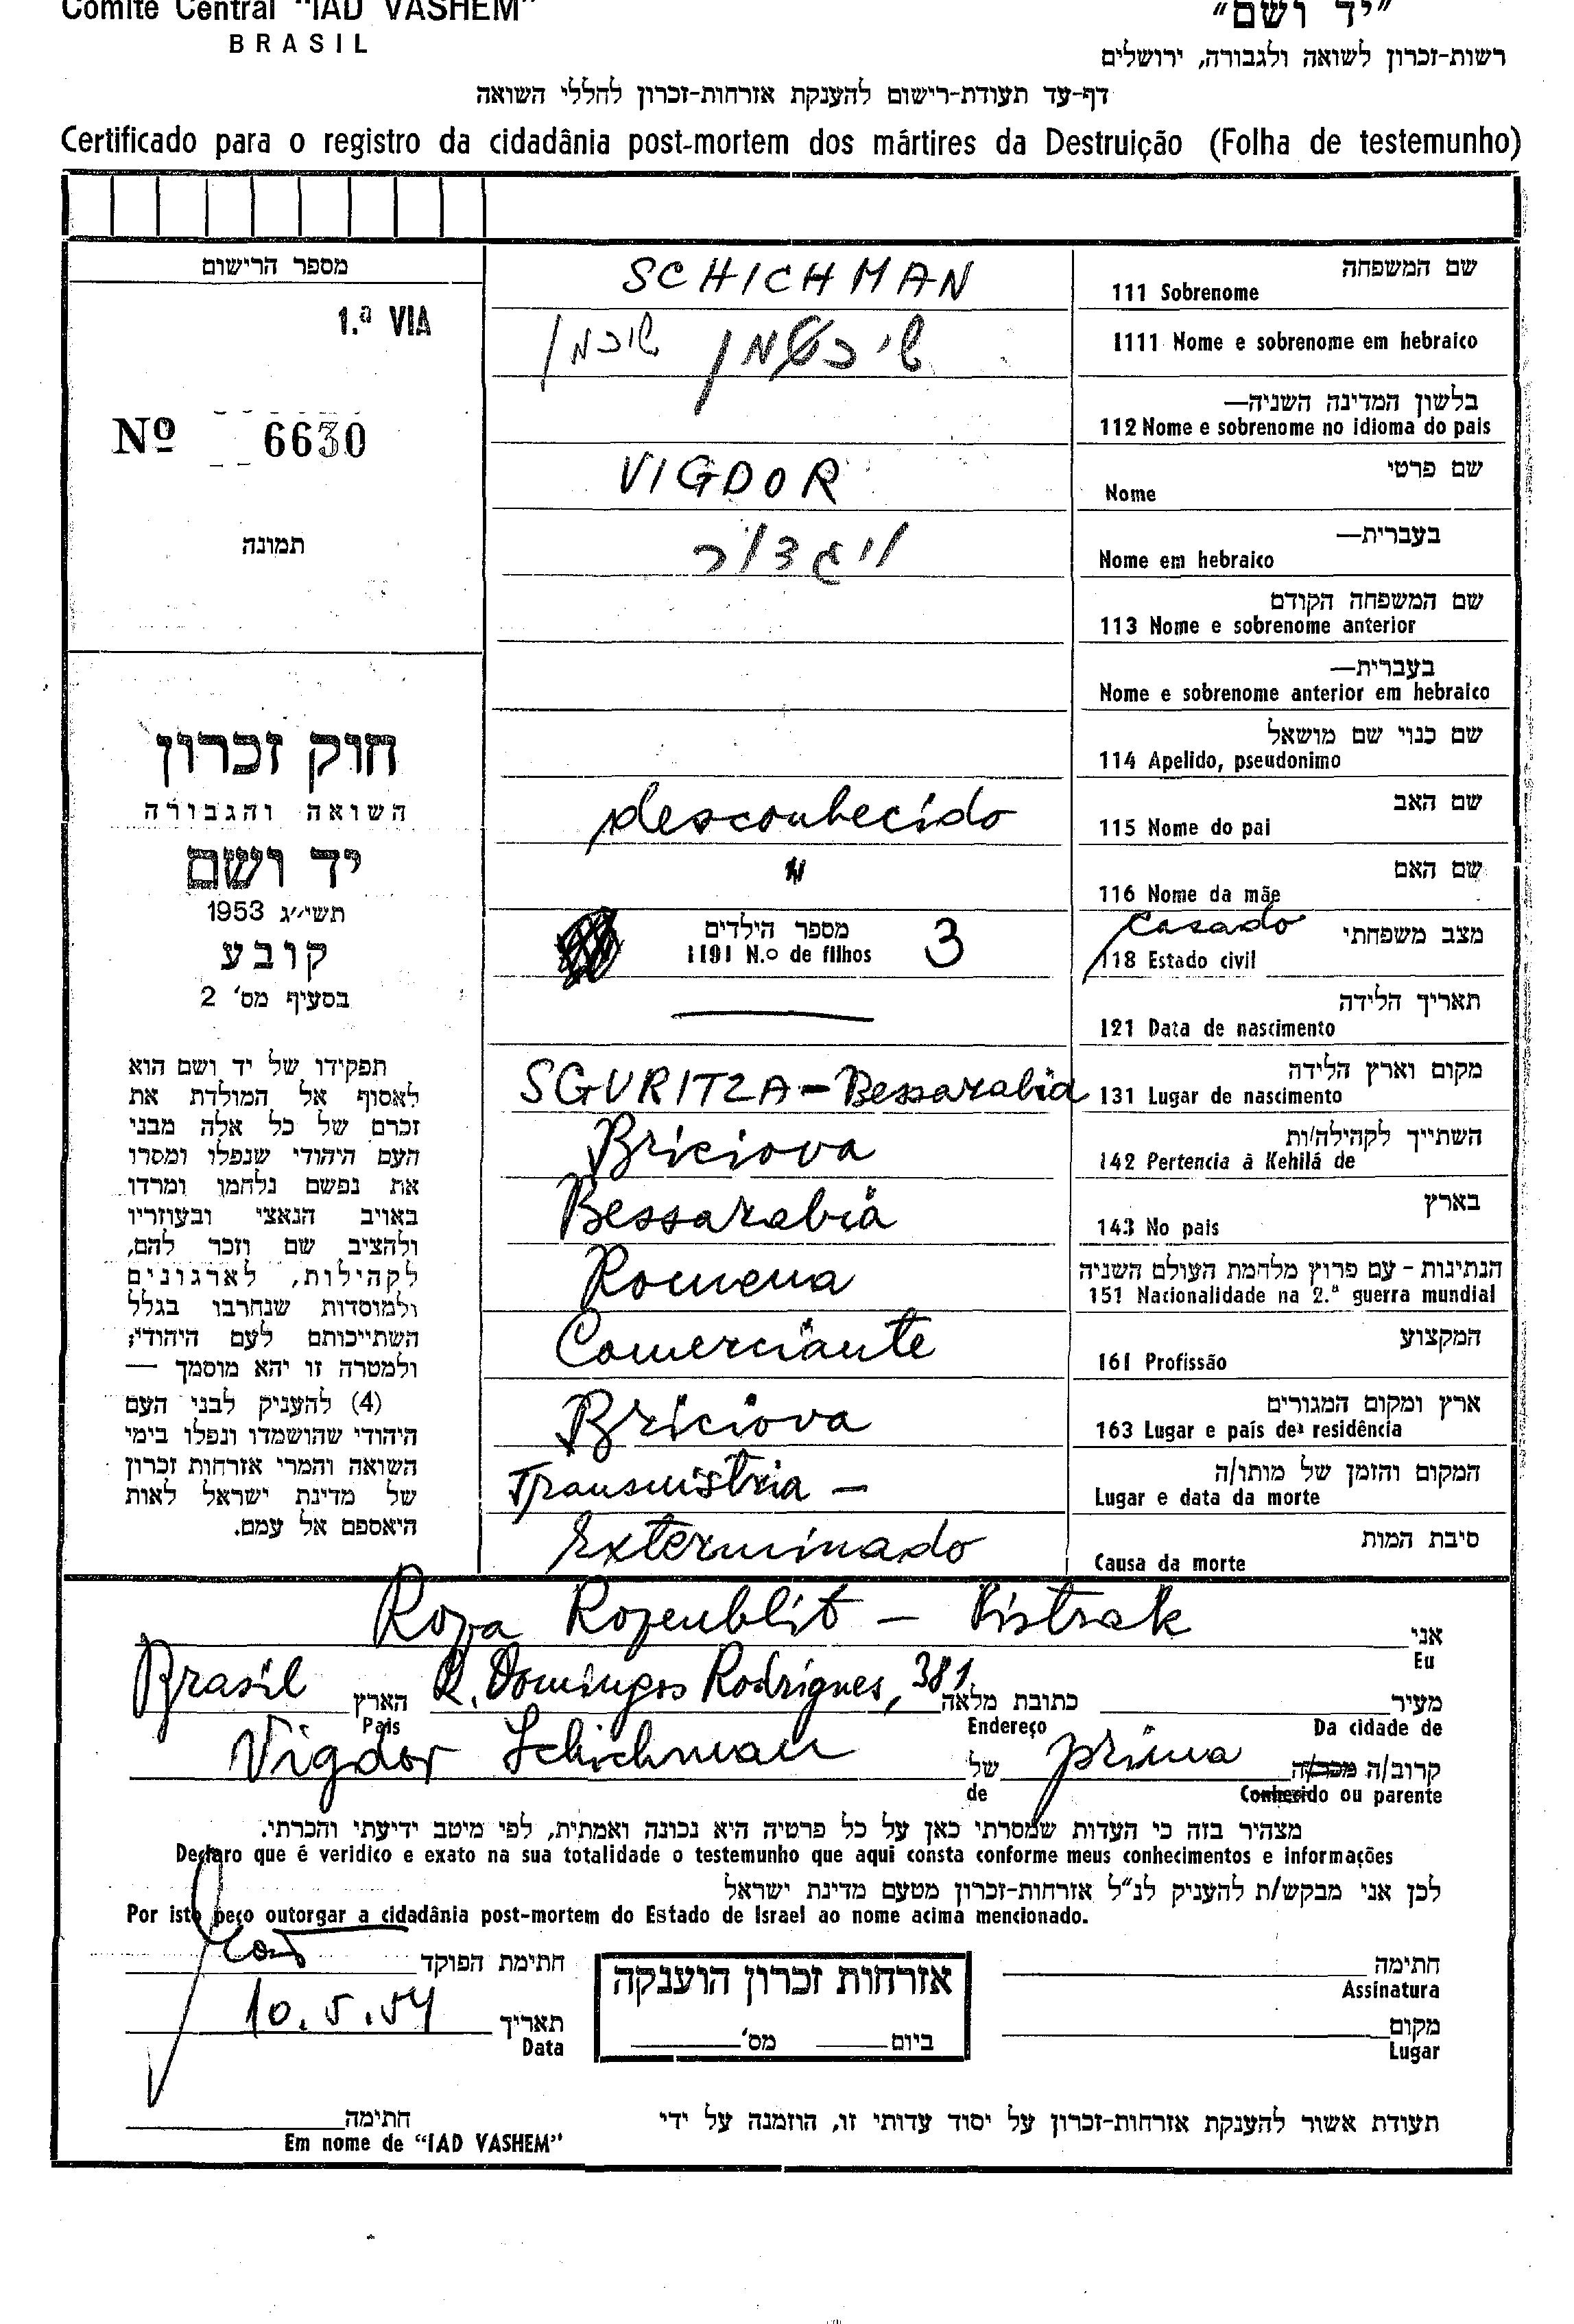 Comité Central "IAD VASHEM"
BRASIL
"יד ושם"
רשות-זכרון לשואה ולגבורה, ירושלים
דף-עד תעודת-רישום להענקת אזרחות-זכרון לחללי השואה
Certificado para o registro da cidadânia post-mortem dos mártires da Destruição (Folha de testemunho)
מספר הרישום
1.ª VIA
Nº 6630
תמונה
חוק זכרון
השואה והגבורה
יד ושם
תשי"ג 1953
קובע
בסעיף מס' 2
תפקידו של יד ושם הוא
לאסוף אל המולדת את
זכרם של כל אלה מבני
העם היהודי שנפלו ומסרו
את נפשם נלחמו ומרדו
באויב הנאצי ובעוזריו
ולהציב שם וזכר להם,
לקהילות, לארגונים
ולמוסדות שנחרבו בגלל
השתייכותם לעם היהודי;
ולמטרה זו יהא מוסמך —
(4) להעניק לבני העם
היהודי שהושמדו ונפלו בימי
השואה והמרי אזרחות זכרון
של מדינת ישראל לאות
היאספם אל עמם.
שם המשפחה
111 Sobrenome SCHICHMAN
1111 Nome e sobrenome em hebraico שיכטמן שיכמן
בלשון המדינה השניה—
112 Nome e sobrenome no idioma do pais
שם פרטי
Nome VIGDOR
בעברית—
Nome em hebraico ויגדור
שם המשפחה הקודם
113 Nome e sobrenome anterior
בעברית—
Nome e sobrenome anterior em hebraico
שם כנוי שם מושאל
114 Apelido, pseudonimo
שם האב
115 Nome do pai desconhecido
שם האם
116 Nome da mãe "
מצב משפחתי
118 Estado civil casado
מספר הילדים
1191 N.º de filhos 3
תאריך הלידה
121 Data de nascimento —
מקום וארץ הלידה
131 Lugar de nascimento SGURITZA - Bessarabia
השתייך לקהילה/ות
142 Pertencia à Kehilá de Briciova
בארץ
143 No pais Bessarabia
הנתינות - עם פרוץ מלחמת העולם השניה
151 Nacionalidade na 2.ª guerra mundial Romena
המקצוע
161 Profissão Comerciante
ארץ ומקום המגורים
163 Lugar e país de residência Briciova
המקום והזמן של מותו/ה
Lugar e data da morte Transnistria -
סיבת המות
Causa da morte Exterminado
אני Roza Rozenblit - Pistrak
Eu
מעיר כתובת מלאה R. Domingos Rodrigues, 381 הארץ Brasil
Da cidade de Endereço Pais
קרוב/ה מכר/ה prima של Vigdor Schichman
Conhecido ou parente de
מצהיר בזה כי העדות שמסרתי כאן על כל פרטיה היא נכונה ואמתית, לפי מיטב ידיעתי והכרתי.
Declaro que é veridico e exato na sua totalidade o testemunho que aqui consta conforme meus conhecimentos e informações
לכן אני מבקש/ת להעניק לנ"ל אזרחות-זכרון מטעם מדינת ישראל
Por isto peço outorgar a cidadânia post-mortem do Estado de Israel ao nome acima mencionado.
חתימה
Assinatura
חתימת הפוקד
אזרחות זכרון הוענקה
מקום
Lugar
ביום מס'
תאריך 10.5.54
Data
תעודת אשור להענקת אזרחות-זכרון על יסוד עדותי זו, הוזמנה על ידי
חתימה
Em nome de "IAD VASHEM"